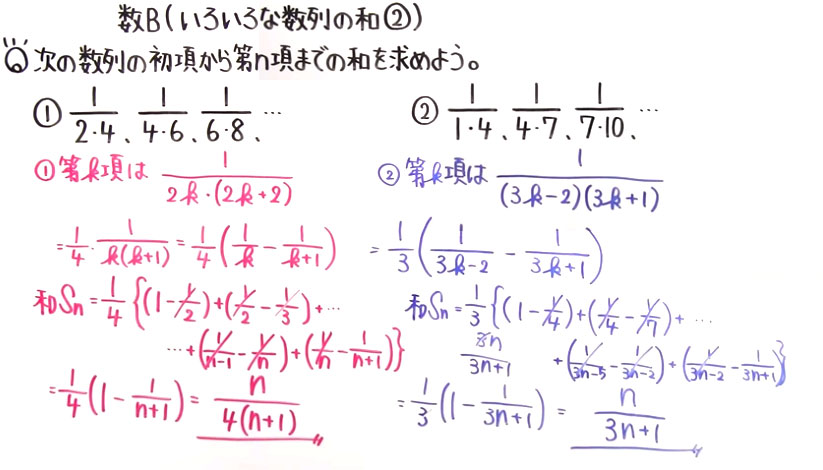 数B(いろいろな数列の和②)
◎次の数列の初項から第n項までの和を求めよう。
① 1/(2・4)、1/(4・6)、1/(6・8)、…
② 1/(1・4)、1/(4・7)、1/(7・10)、…
①第k項は 1/(2k・(2k+2))
=1/4・1/(k(k+1))=1/4(1/k-1/(k+1))
和Sn=1/4{(1-1/2)+(1/2-1/3)+…
…+(1/(n-1)-1/n)+(1/n-1/(n+1))}
=1/4(1-1/(n+1))=n/(4(n+1))
②第k項は 1/((3k-2)(3k+1))
=1/3(1/(3k-2)-1/(3k+1))
和Sn=1/3{(1-1/4)+(1/4-1/7)+…
3n/(3n+1) +(1/(3n-5)-1/(3n-2))+(1/(3n-2)-1/(3n+1))}
=1/3(1-1/(3n+1))=n/(3n+1)